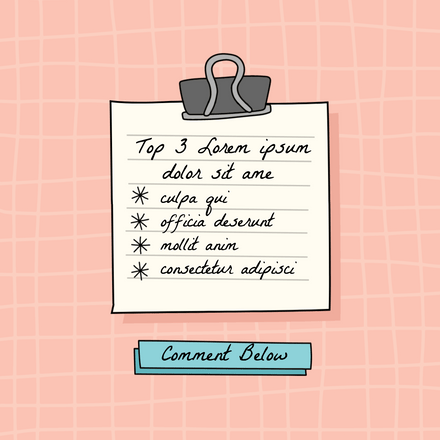 Top 3 Lorem ipsum
dolor sit ame
culpa qui
officia deserunt
mollit anim
consectetur adipisci
Comment Below